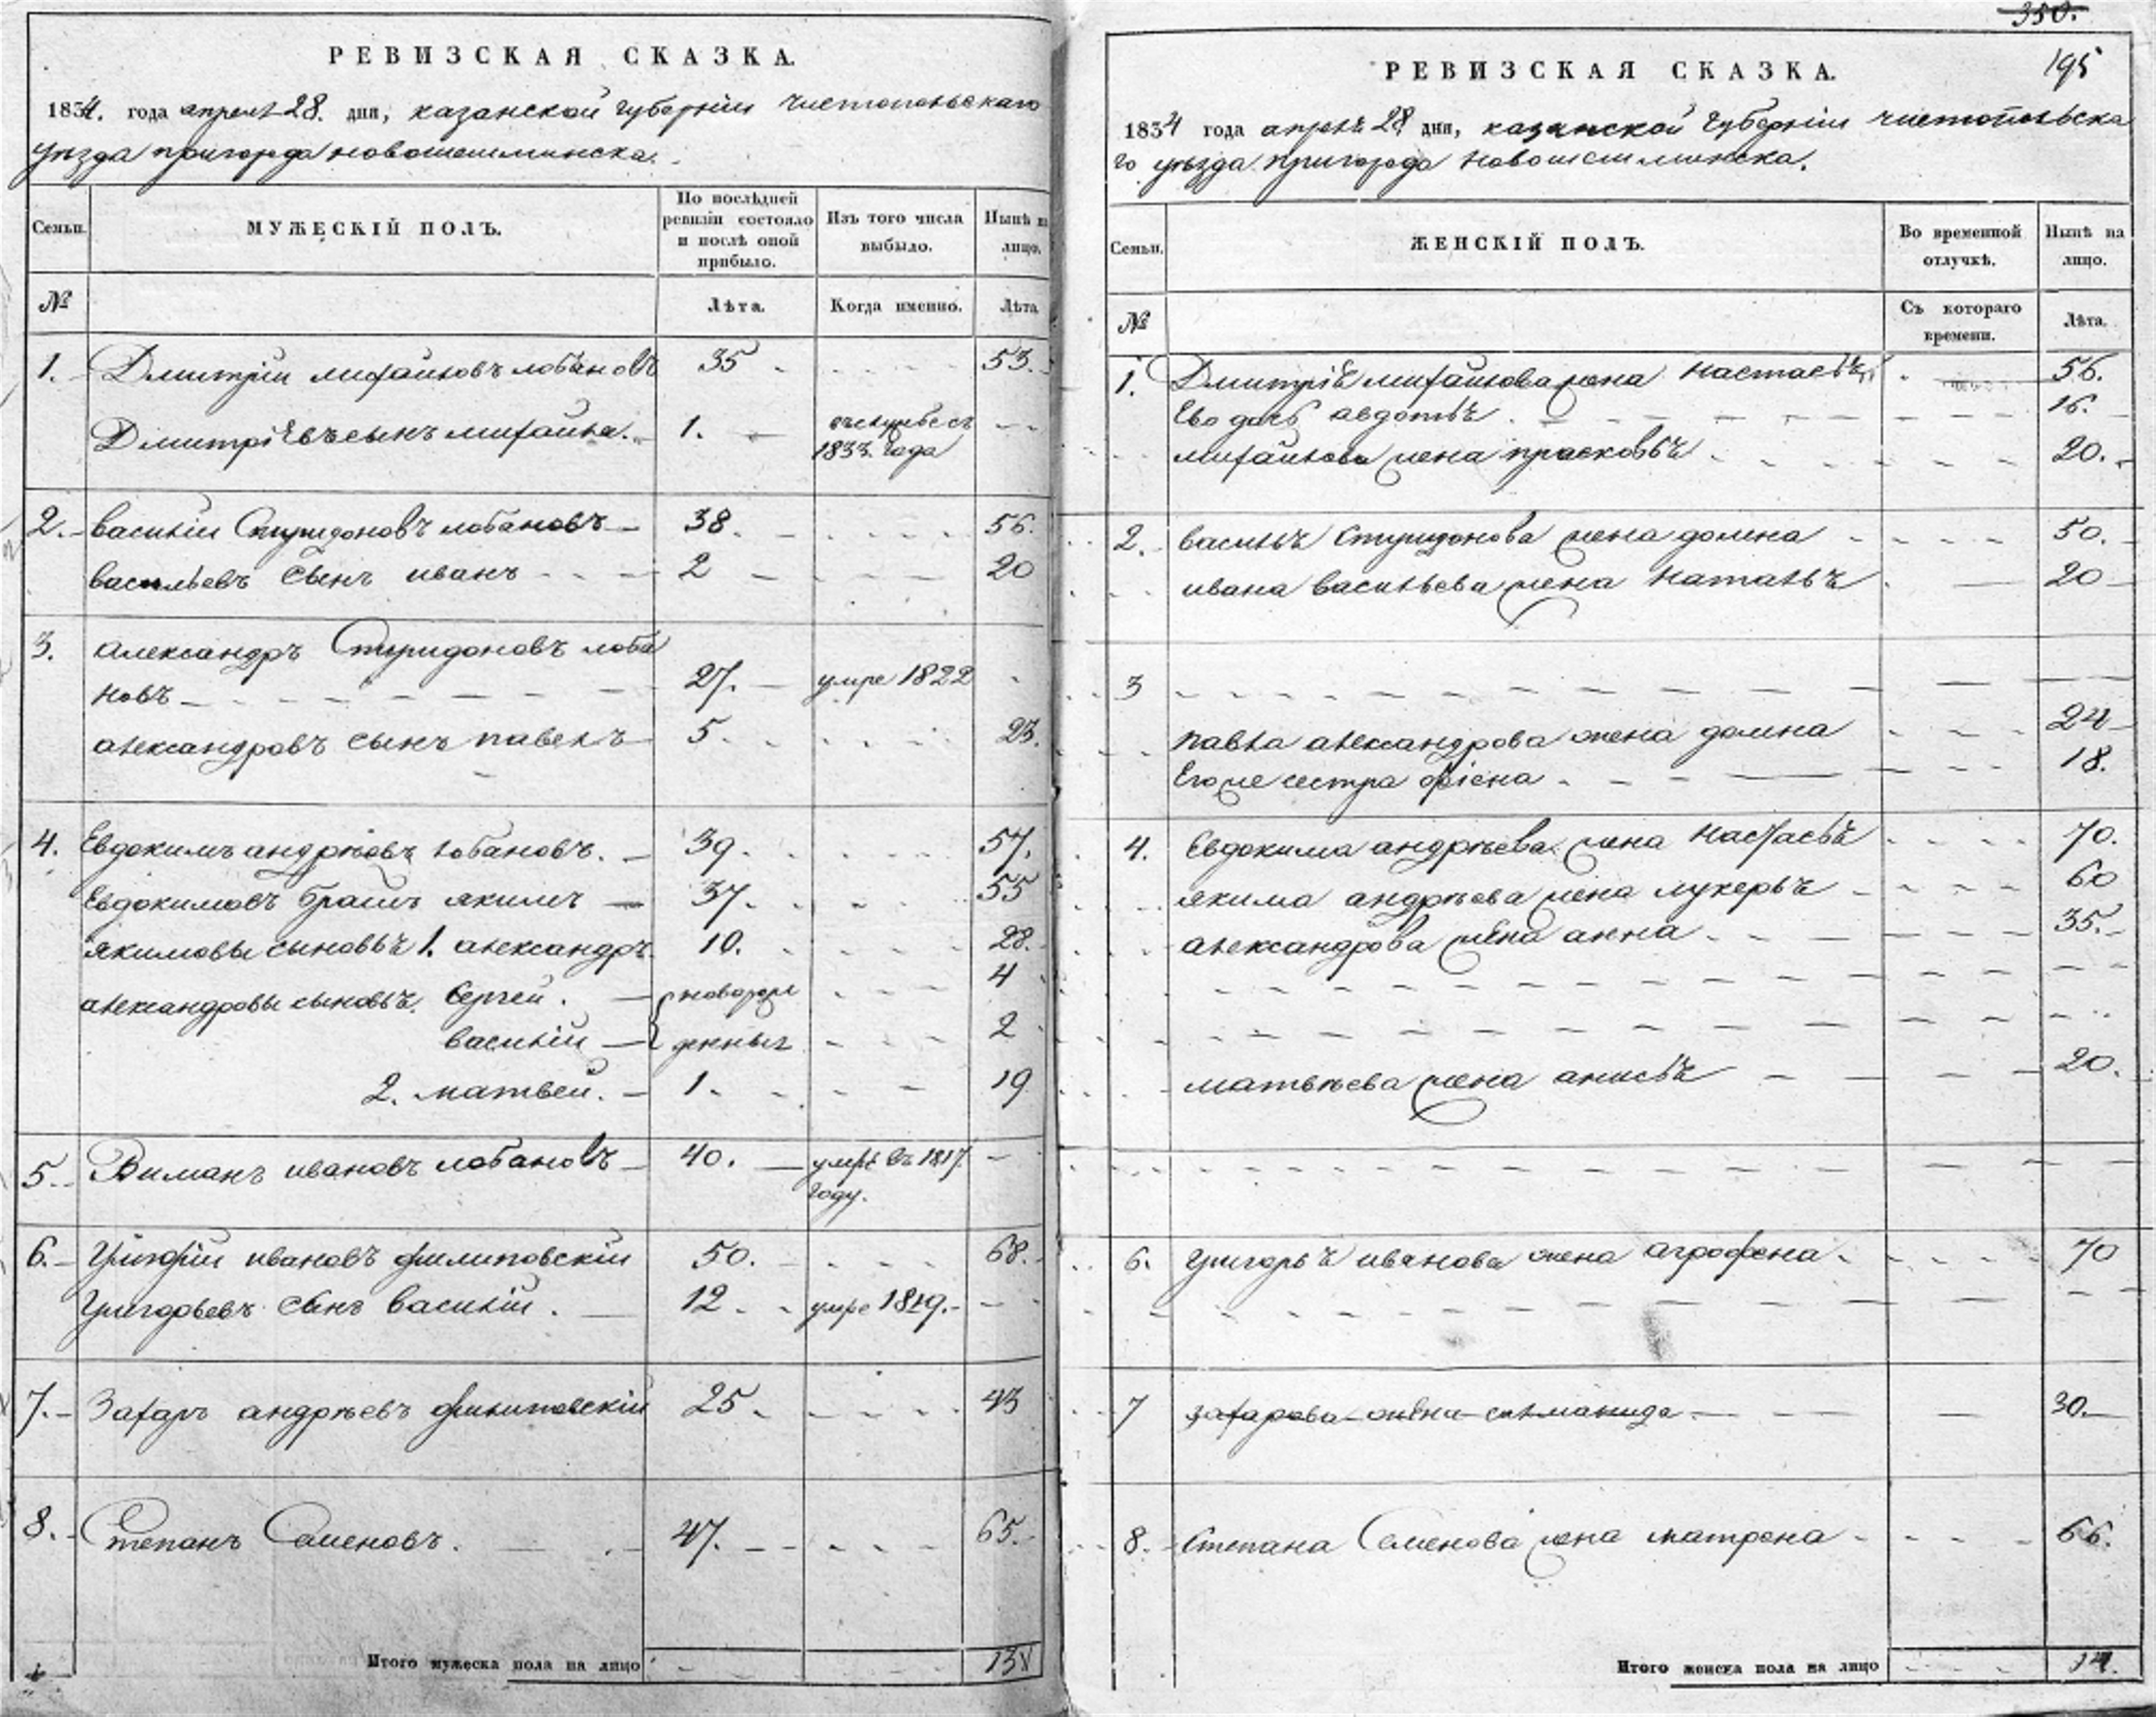 РЕВИЗСКАЯ СКАЗКА.
1834. года апреля 28. дня, казанской губернии чистопольскаго
уѣзда пригорода новошешминска.
Семьи.
МУЖЕСКІЙ ПОЛЪ.
По послѣдней ревизіи состояло и послѣ оной прибыло.
Изъ того числа выбыло.
Нынѣ на лицо.
№
Лѣта.
Когда именно.
Лѣта
1. Дмитрій михайловъ лобановъ 35 53.
Дмитріевъ сынъ михайла. 1. 1833. года
2. василіи Спиридоновъ лобановъ 38. 56.
васильевъ сынъ иванъ 2 20
3. александръ Спиридоновъ лоба
новъ 27. умре 1822
александровъ сынъ павелъ 5. 23.
4. Евдокимъ андрѣевъ лобановъ. 39. 57.
Евдокимовъ братъ якимъ 37. 55
якимовы сыновья 1. александръ 10. 28.
александровы сыновья. Сергей. новорож 4
василіи денныя 2
2. матвеи. 1. 19
5. ивановъ лобановъ 40. умре въ 1817
году.
6. Григорій ивановъ филиповскіи 50. 68.
Григорьевъ сынъ василіи. 12. умре 1819.
7. Захаръ андрѣевъ филиповскій 25. 43
8. Степанъ Семеновъ. 47. 65.
Итого мужеска пола на лицо
350.
195
РЕВИЗСКАЯ СКАЗКА.
1834 года апреля 28. дня, казанской губерніи чистопольска
го уѣзда пригорода новошешминска.
Семьи.
ЖЕНСКІЙ ПОЛЪ.
Во временной отлучкѣ.
Нынѣ на лицо.
№
Съ котораго времени.
Лѣта.
1. Дмитрія михайлова жена настасья 56.
Ево дочь авдотья. 16.
михайлова жена прасковья 20.
2. василья Спиридонова жена домна 50.
ивана васильева жена наталья 20
3
павла александрова жена домна 24
Егоже сестра 18.
4. Евдокима андрѣева жена настасья 70.
якима андрѣева жена лукерья 60
александрова жена анна 35.
матвѣева жена анисья 20.
6. Григорья иванова жена агрофена 70
7 захарова жена саломанида 30.
8. Степана Семенова жена матрена 66.
Итого женска пола на лицо 14.